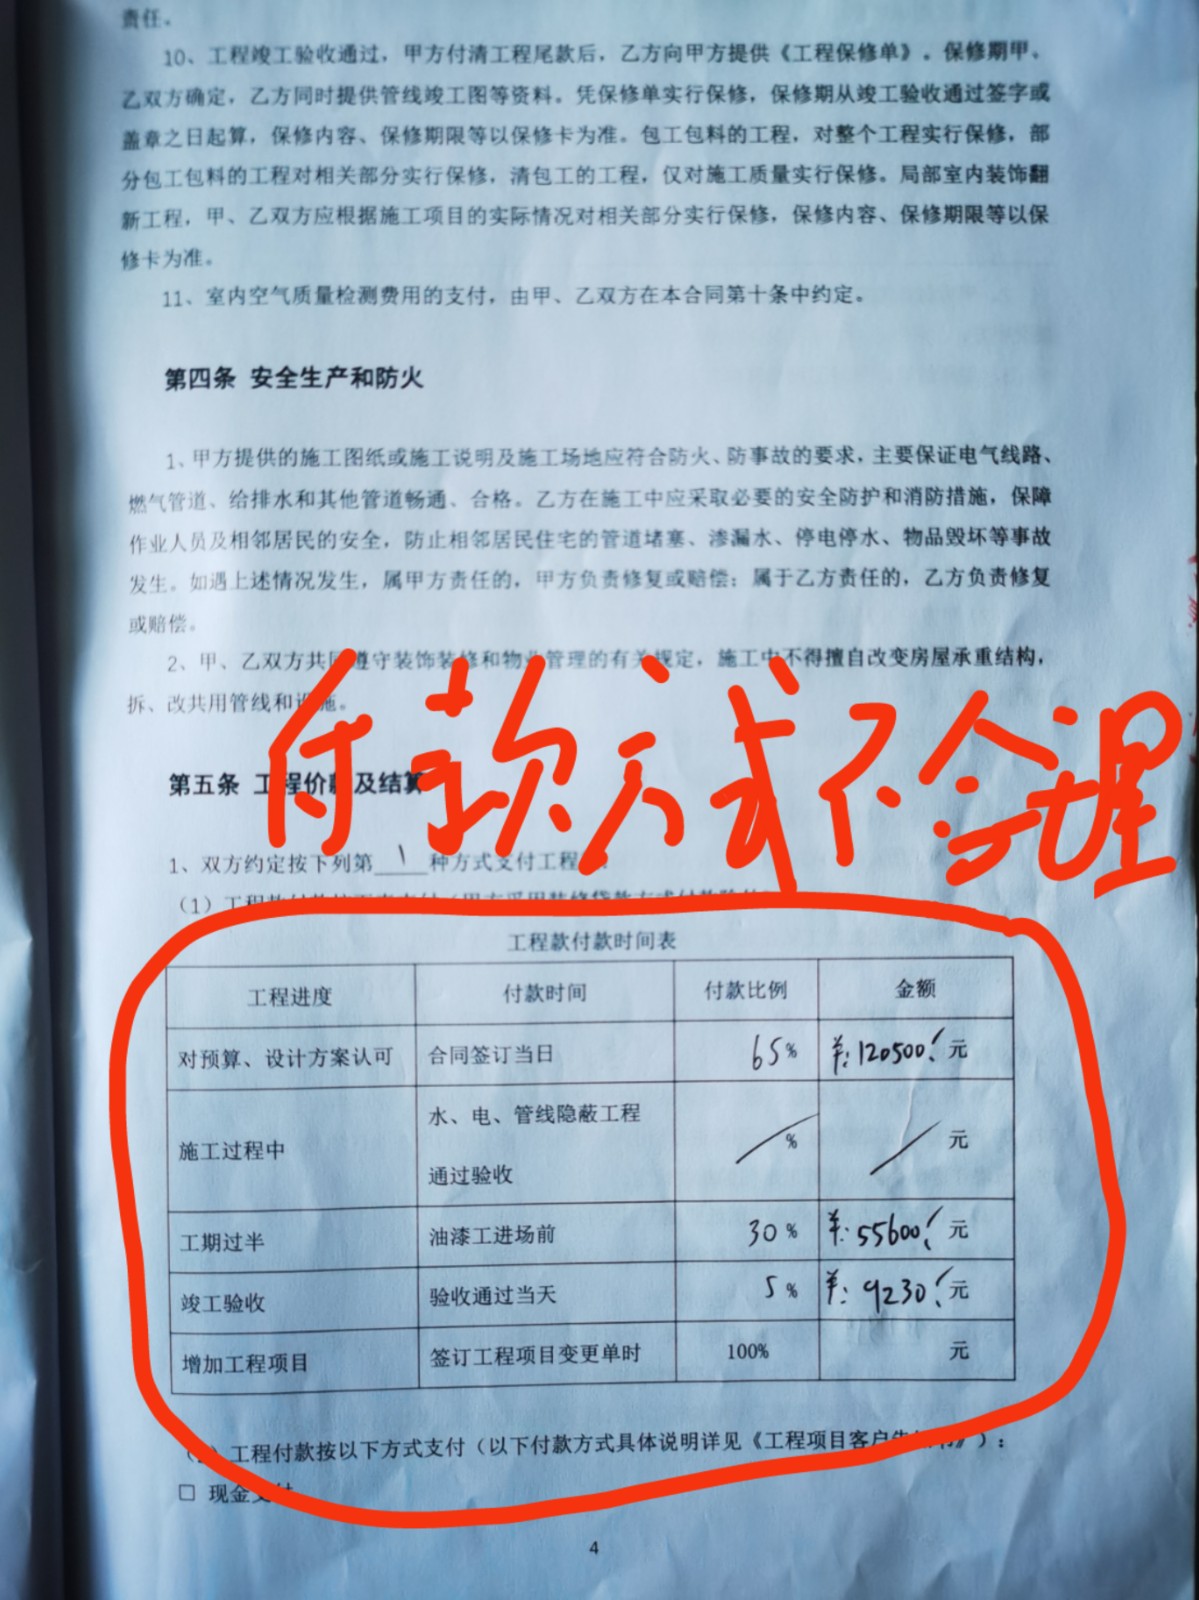 责任。
10、工程竣工验收通过，甲方付清工程尾款后，乙方向甲方提供《工程保修单》。保修期甲、
乙双方确定，乙方同时提供管线竣工图等资料。凭保修单实行保修，保修期从竣工验收通过签字或
盖章之日起算，保修内容、保修期限等以保修卡为准。包工包料的工程，对整个工程实行保修，部
分包工包料的工程对相关部分实行保修，清包工的工程，仅对施工质量实行保修。局部室内装饰翻
新工程，甲、乙双方应根据施工项目的实际情况对相关部分实行保修，保修内容、保修期限等以保
修卡为准。
11、室内空气质量检测费用的支付，由甲、乙双方在本合同第十条中约定。
第四条 安全生产和防火
1、甲方提供的施工图纸或施工说明及施工场地应符合防火、防事故的要求，主要保证电气线路、
燃气管道、给排水和其他管道畅通、合格。乙方在施工中应采取必要的安全防护和消防措施，保障
作业人员及相邻居民的安全，防止相邻居民住宅的管道堵塞、渗漏水、停电停水、物品毁坏等事故
发生。如遇上述情况发生，属甲方责任的，甲方负责修复或赔偿；属于乙方责任的，乙方负责修复
或赔偿。
2、甲、乙双方共同遵守装饰装修和物业管理的有关规定，施工中不得擅自改变房屋承重结构，
拆、改共用管线和设施。
付款方式不合理
第五条 工程价款及结算
1、双方约定按下列第 1 种方式支付工程
（1）工程款付款按下表支付（甲方采用装修贷款方式付款除外
工程款付款时间表
工程进度 付款时间 付款比例 金额
对预算、设计方案认可 合同签订当日 65% ￥:120500! 元
施工过程中 水、电、管线隐蔽工程 % 元
通过验收
工期过半 油漆工进场前 30% ￥:55600! 元
竣工验收 验收通过当天 5% ￥:9230! 元
增加工程项目 签订工程项目变更单时 100% 元
工程付款按以下方式支付（以下付款方式具体说明详见《工程项目客户告知书》）：
□ 现金支付
4